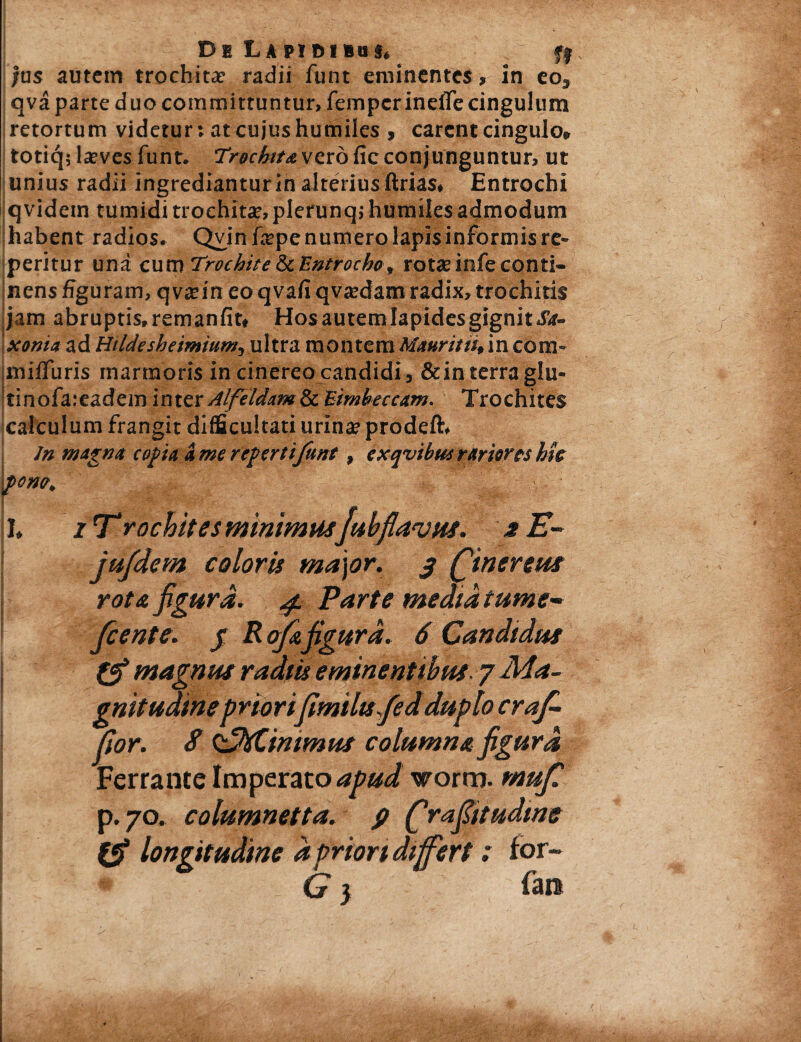 DE LAPIDIBUS.
jus autem trochitæ radii ſunt eminentes, in eo,
qvâ parte duo committuntur, ſemper ineſſe cingulum
retortum videtur: at cujus humiles, carent cingulo,
totiq; læves ſunt. Trochitæ verò ſic conjunguntur, ut
unius radii ingrediantur in alterius ſtrias. Entrochi
qvidem tumidi trochitæ, plerunq; humiles admodum
habent radios. Qvin ſæpe numero lapis informis re-
peritur unà cum Trochite & Entrocho, rotæ in ſe conti-
nens figuram, qvæ in eo qvaſi qvædam radix, trochitis
jam abruptis, remanſit. Hos autem lapides gignit Sa-
xonia ad Hildesheimium, ultra montem Mauritii, in com-
miſſuris marmoris in cinereo candidi, & in terra glu-
tinoſa: eadem inter Alfeldam & Eimbeccam. Trochites
calculum frangit difficultati urinæ prodeſt.
In magna copia à me reperti ſunt, ex qvibus rariores hîc
pono.
I. 1 Trochites minimus ſubflavus. 2 E-
juſdem coloris major. 3 Cinereus
rotæ figurâ. 4 Parte mediâ tume-
ſcente. 5 Roſæ figurâ. 6 Candidus
& magnus radiis eminentibus. 7 Ma-
gnitudine priori ſimilis ſed duplo craſ-
ſior. 8 Minimus columnæ figurâ
Ferrante Imperato apud worm. muſ.
p. 70. columnetta. 9 Craſſitudine
& longitudine à priori differt; for-
G 3 ſan